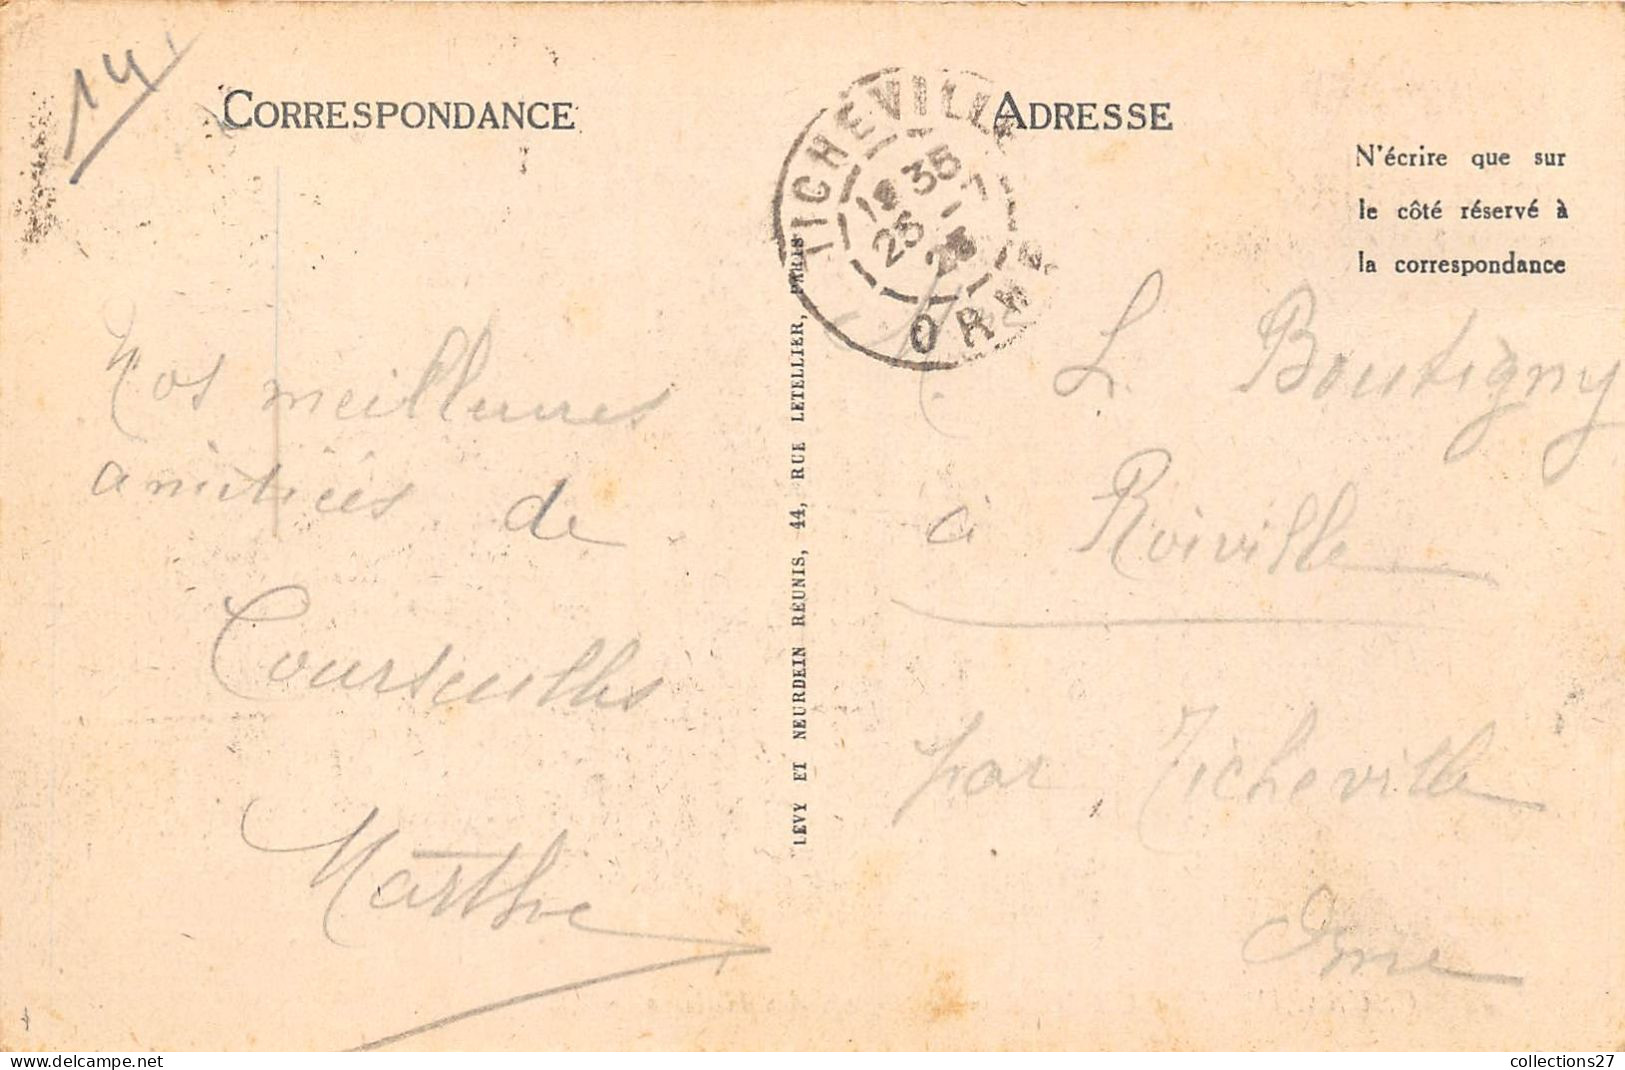 14
CORRESPONDANCE
ADRESSE
N'écrire que sur
le côté réservé à
la correspondance
TICHEVILLE
35
25 - 7
ORNE
Nos meilleures
amitiés de
Courseulles
Marthe
LEVY ET NEURDEIN REUNIS, 44, RUE LETELLIER, PARIS
M. L. Boutigny
à Roiville
par Ticheville
Orne
collections27